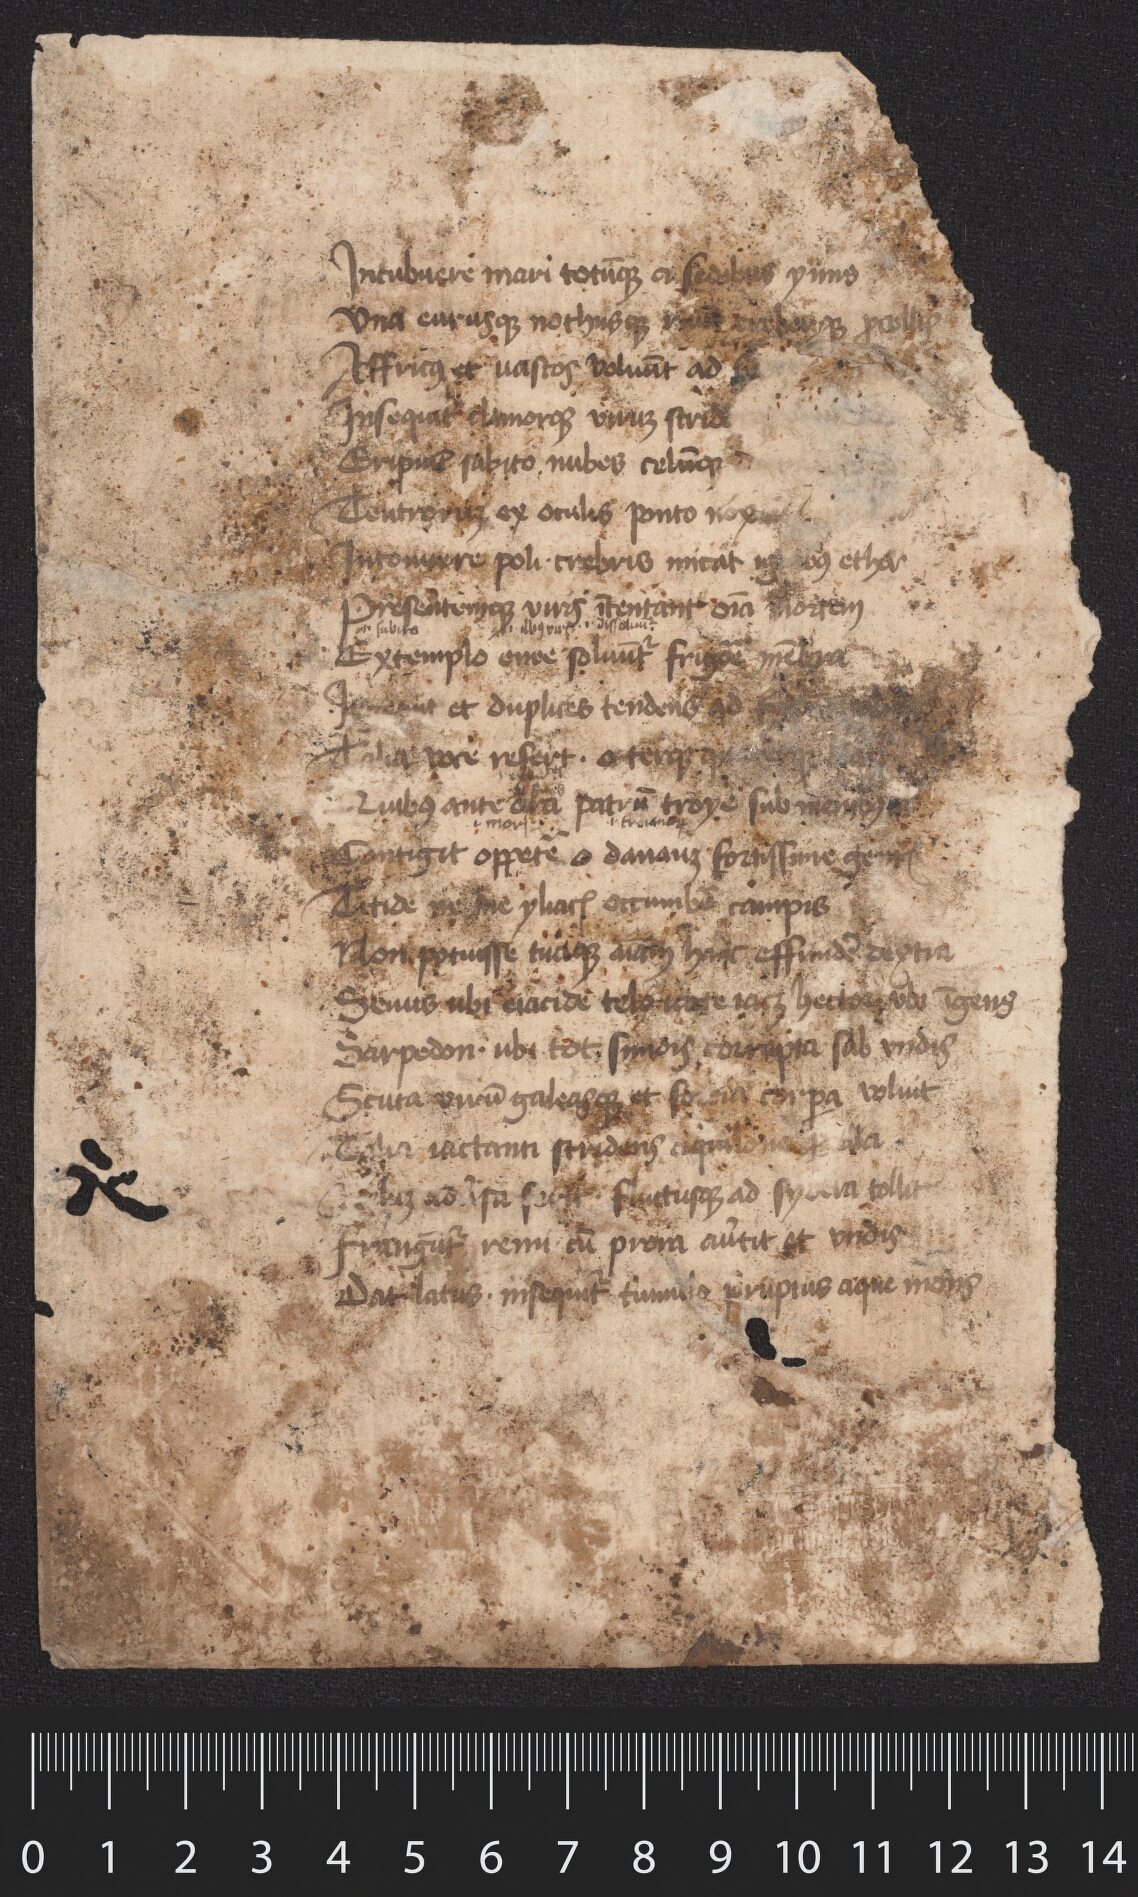 Incubuere mari totūqȝ a sedibus ymis
Vna eurusqȝ nothusqȝ ruūt creberqȝ ꝓcellis
Affricꝰ et uastos voluūt ad
Inseqͥtͬ clamorqȝ virūȝ stride
Eripiūt subito nubes celūqȝ
Teucroruȝ ex oculis ponto nox
Intonuere poli · crebris micat ig bꝰ ether
Presentemqȝ viris ītentant oīa mortem
.i. subito
.i. dissoluūtͬ
Extemplo enee soluūtͬ frigoͤe mēbra
Ingemit et duplices tendens ad
Talia voce refert · o terqȝ
Quibꝰ ante ora patrū troye sub menibꝰ
.i. mori
Contigit oppetēͤ o danauȝ fortissime gentis
Titide me ne yliacis occumbēͤ campis
Non potuisse tuaqȝ aīam hanc effundēͤ dextra
Seuus ubi eacide telo iacȝ hector vbi īgens
Sarpedon · ubi tot simois correpta sub vndis
Scuta virū galeasqȝ et fortia corpa voluit
Talia iactanti stridens aquilone ꝓcella
ad fert · fluctusqȝ ad sydera tollit
Frangūtͬ remi · cū prora aūtit et vndis
Dat latus · insequitͬ cumulo p̄ruptus aque mons